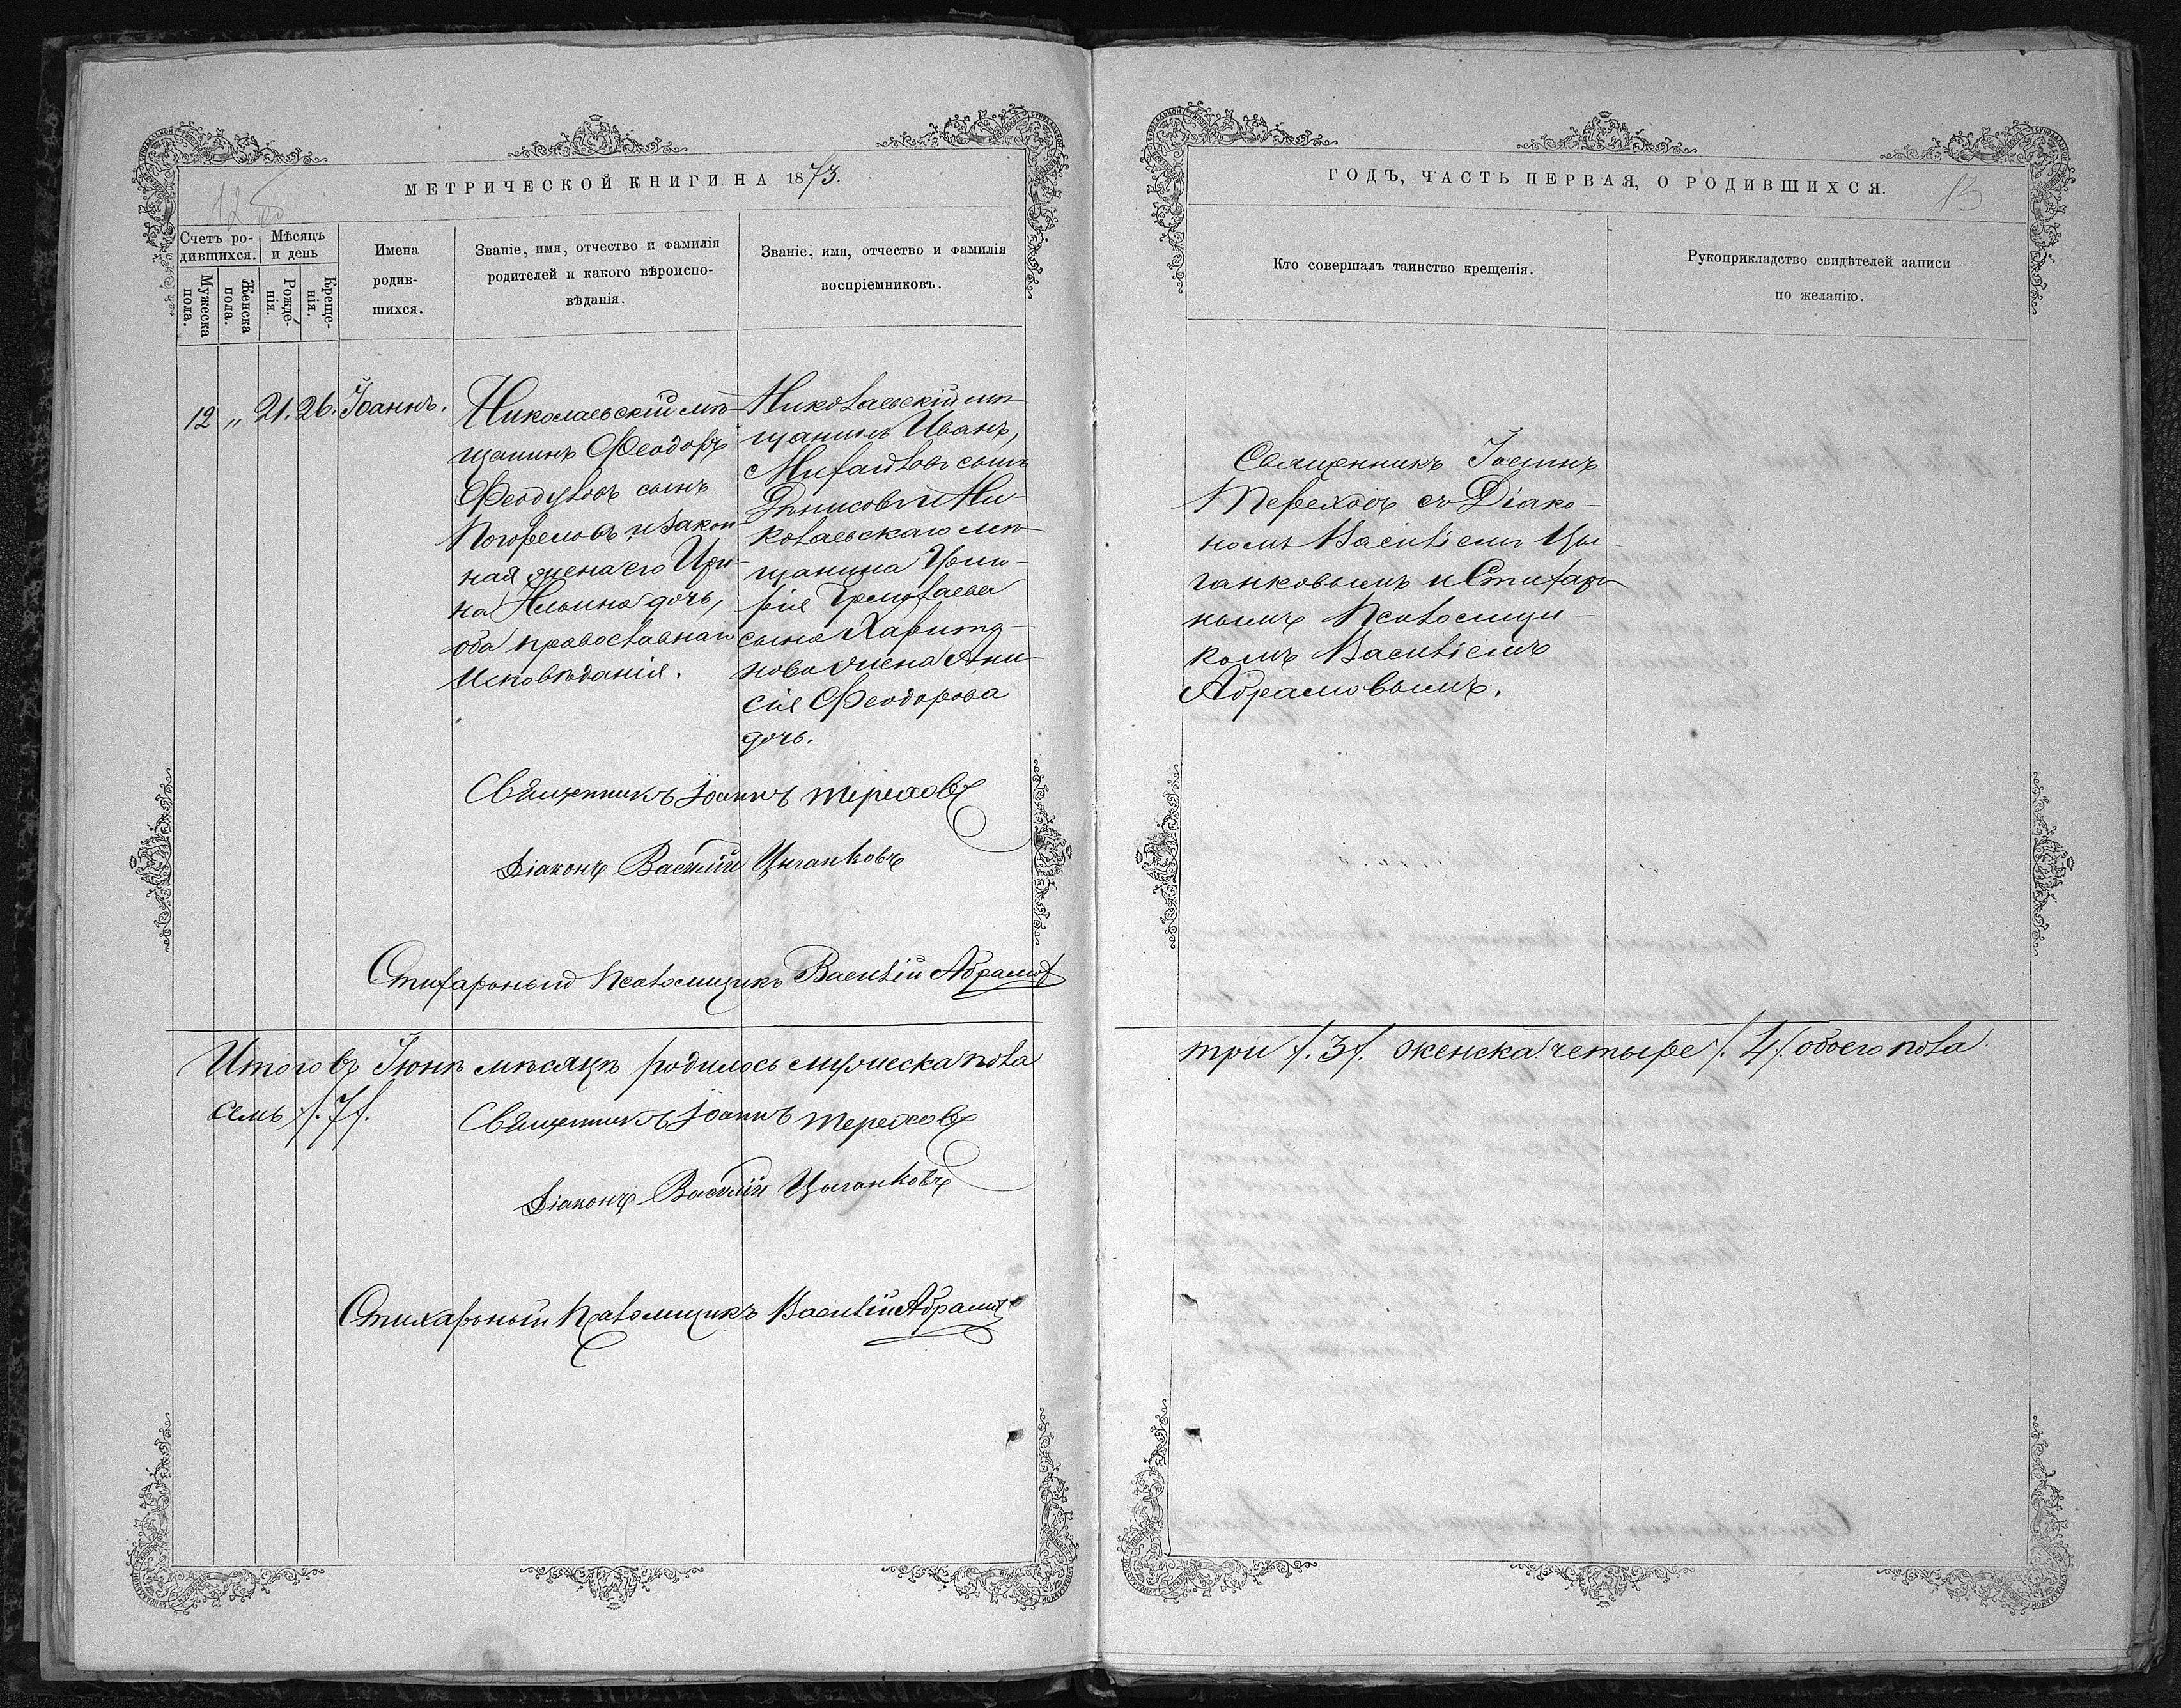 МЕТРИЧЕСКОЙ КНИГИ НА 1873.
Счетъ ро-
дившихся.
Мѣсяцъ
и день
Мужеска
пола.
Женска
пола.
Рожде-
нія.
Креще-
нія.
Имена
родив-
шихся.
Званіе, имя, отчество и фамилія
родителей и какого вѣроиспо-
вѣданія.
Званіе, имя, отчество и фамилія
воспріемниковъ.
12 „ 21. 26. Іоаннъ.
Николаевскій мѣ-
щанинъ Феодоръ
Феодуловъ сынъ
Погореловъ, и закон-
ная жена его Ири-
на Ильина дочь,
оба православнаго
исповѣданія.
Николаевскій мѣ-
щанинъ Иванъ,
Михайловъ сынъ
Денисовъ и Ни-
колаевскаго мѣ-
щанина
Ермолаева
сына Харито-
нова жена Ани-
сія Феодорова
дочь.
Священникъ Іоаннъ Тереховъ
Діаконъ Василій Цыганковъ
Стихарный Псаломщикъ Василій Абрамовъ
Итого въ Іюнѣ мѣсяцѣ родилось мужеска пола
семь /.7/.
Священникъ Іоаннъ Тереховъ
Діаконъ Василій Цыганковъ
Стихарный Псаломщикъ Василій Абрамовъ
ГОДЪ, ЧАСТЬ ПЕРВАЯ, О РОДИВШИХСЯ.
13
Кто совершалъ таинство крещенія.
Рукоприкладство свидѣтелей записи
по желанію.
Священникъ Іоаннъ
Тереховъ съ Діако-
номъ Василіемъ Цы-
ганковымъ и Стихар-
нымъ Псаломщи-
комъ Василіемъ
Абрамовымъ.
три /.3/. женска четыре /.4/. обоего пола